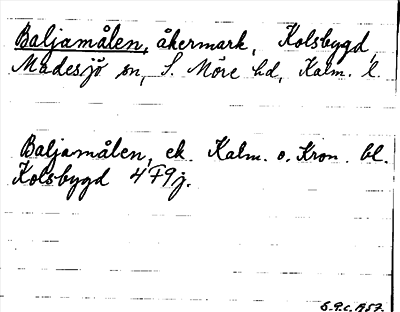 Baljamålen, åkermark, Kolsbygd,
Madesjö sn, S. Möre hd, Kalm. l.
Baljamålen, ek. Kalm. o. Kron. bl.
Kolsbygd 4 F 9 j.
1957.